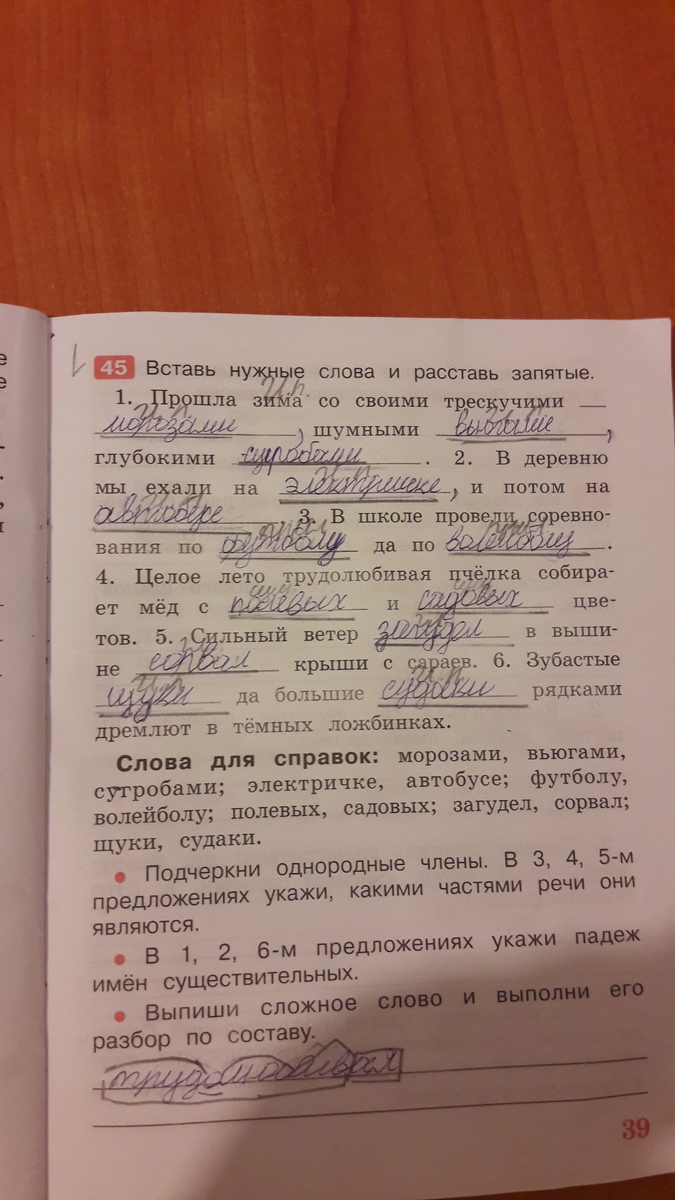 45 Вставь нужные слова и расставь запятые.
И.п.
1. Прошла зима со своими трескучими
морозами, шумными вьюгами,
глубокими сугробами. 2. В деревню
мы ехали на электричке, и потом на
автобусе 3. В школе провели соревно-
вания по футболу да по волейболу.
4. Целое лето трудолюбивая пчёлка собира-
ет мёд с полевых и садовых цве-
тов. 5. Сильный ветер загудел в выши-
не сорвал крыши с сараев. 6. Зубастые
щуки да большие судаки рядками
дремлют в тёмных ложбинках.
Слова для справок: морозами, вьюгами,
сугробами; электричке, автобусе; футболу,
волейболу; полевых, садовых; загудел, сорвал;
щуки, судаки.
• Подчеркни однородные члены. В 3, 4, 5-м
предложениях укажи, какими частями речи они
являются.
• В 1, 2, 6-м предложениях укажи падеж
имён существительных.
• Выпиши сложное слово и выполни его
разбор по составу.
трудолюбивая
39